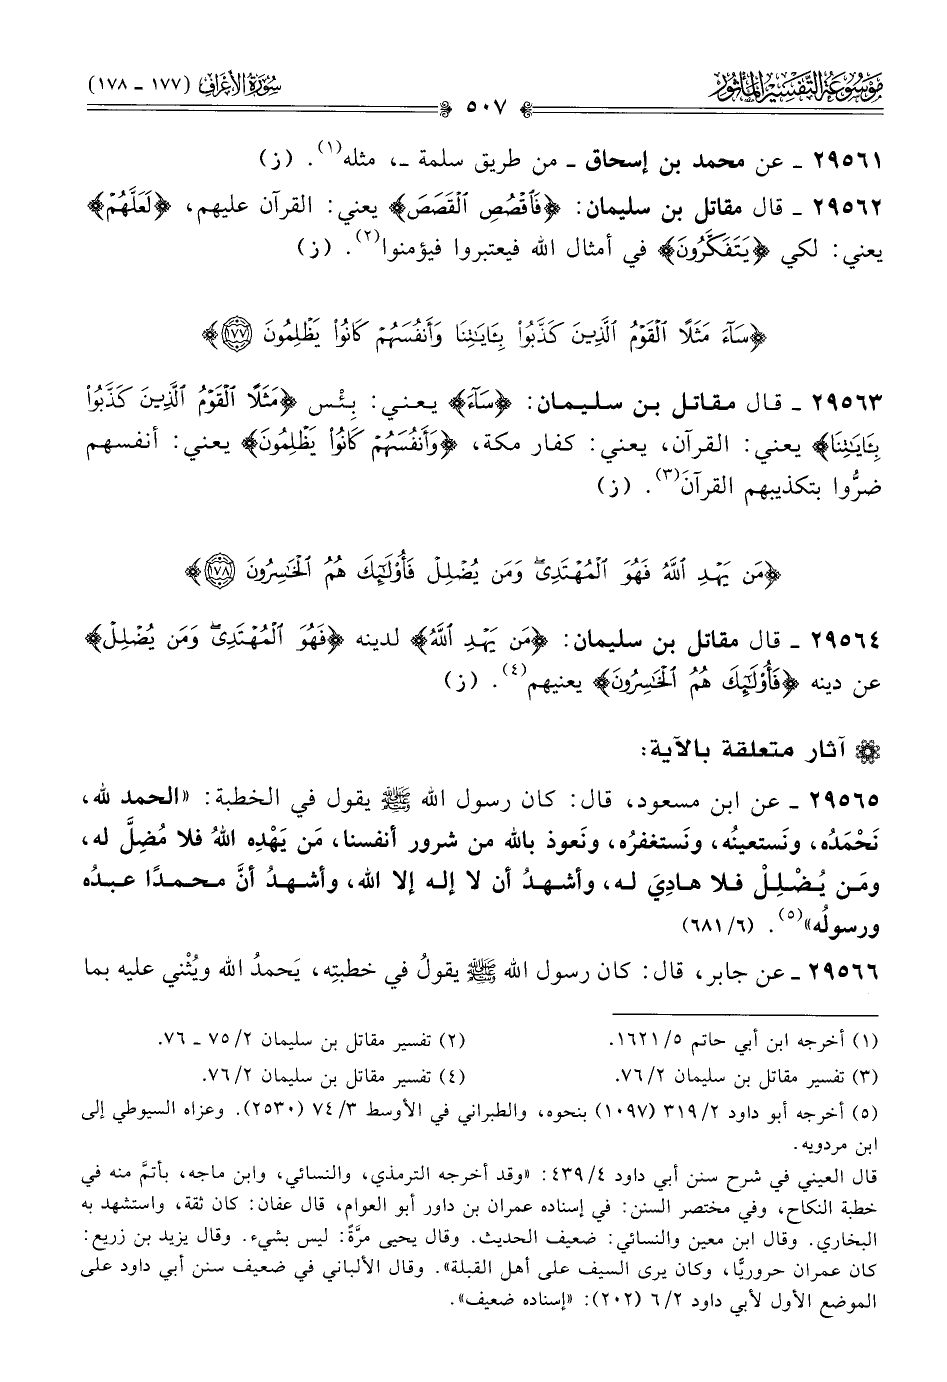 موسوعة التفسير المأثور
سورة الأعراف (١٧٧ - ١٧٨)
٥٠٧
٢٩٥٦١ - عن محمد بن إسحاق - من طريق سلمة -، مثله(١). (ز)
٢٩٥٦٢ - قال مقاتل بن سليمان: ﴿فَٱقۡصُصِ ٱلۡقَصَصَ﴾ يعني: القرآن عليهم، ﴿لَعَلَّهُمۡ﴾
يعني: لكي ﴿يَتَفَكَّرُونَ﴾ في أمثال الله فيعتبروا فيؤمنوا(٢). (ز)
﴿سَآءَ مَثَلًا ٱلۡقَوۡمُ ٱلَّذِينَ كَذَّبُواْ بِـَٔايَٰتِنَا وَأَنفُسَهُمۡ كَانُواْ يَظۡلِمُونَ ١٧٧﴾
٢٩٥٦٣ - قال مقاتل بن سليمان: ﴿سَآءَ﴾ يعني: بِئْس ﴿مَثَلًا ٱلۡقَوۡمُ ٱلَّذِينَ كَذَّبُواْ
بِـَٔايَٰتِنَا﴾ يعني: القرآن، يعني: كفار مكة، ﴿وَأَنفُسَهُمۡ كَانُواْ يَظۡلِمُونَ﴾ يعني: أنفسهم
ضرُّوا بتكذيبهم القرآنَ(٣). (ز)
﴿مَن يَهۡدِ ٱللَّهُ فَهُوَ ٱلۡمُهۡتَدِيۖ وَمَن يُضۡلِلۡ فَأُوْلَٰٓئِكَ هُمُ ٱلۡخَٰسِرُونَ ١٧٨﴾
٢٩٥٦٤ - قال مقاتل بن سليمان: ﴿مَن يَهۡدِ ٱللَّهُ﴾ لدينه ﴿فَهُوَ ٱلۡمُهۡتَدِيۖ وَمَن يُضۡلِلۡ﴾
عن دينه ﴿فَأُوْلَٰٓئِكَ هُمُ ٱلۡخَٰسِرُونَ﴾ يعنيهم(٤). (ز)
آثار متعلقة بالآية:
٢٩٥٦٥ - عن ابن مسعود، قال: كان رسول الله ﷺ يقول في الخطبة: «الحمد لله،
نَحْمَدُه، ونَستعينُه، ونَستغفرُه، ونَعوذ بالله من شرور أنفسنا، مَن يَهْدِه اللهُ فلا مُضِلَّ له،
ومَن يُضْلِلْ فلا هاديَ له، وأشهدُ أن لا إله إلا الله، وأشهدُ أنَّ محمدًا عبدُه
ورسولُه»(٥). (٦/ ٦٨١)
٢٩٥٦٦ - عن جابر، قال: كان رسول الله ﷺ يقولُ في خطبتِه، يَحمدُ الله ويُثْني عليه بما
(١) أخرجه ابن أبي حاتم ٥/ ١٦٢١.
(٢) تفسير مقاتل بن سليمان ٢/ ٧٥ - ٧٦.
(٣) تفسير مقاتل بن سليمان ٢/ ٧٦.
(٤) تفسير مقاتل بن سليمان ٢/ ٧٦.
(٥) أخرجه أبو داود ٢/ ٣١٩ (١٠٩٧) بنحوه، والطبراني في الأوسط ٣/ ٧٤ (٢٥٣٠). وعزاه السيوطي إلى
ابن مردويه.
قال العيني في شرح سنن أبي داود ٤/ ٤٣٩: «وقد أخرجه الترمذي، والنسائي، وابن ماجه، بأتمَّ منه في
خطبة النكاح، وفي مختصر السنن: في إسناده عمران بن داور أبو العوام، قال عفان: كان ثقة، واستشهد به
البخاري. وقال ابن معين والنسائي: ضعيف الحديث. وقال يحيى مرَّةً: ليس بشيء. وقال يزيد بن زريع:
كان عمران حروريًّا، وكان يرى السيف على أهل القبلة». وقال الألباني في ضعيف سنن أبي داود على
الموضع الأول لأبي داود ٢/ ٦ (٢٠٢): «إسناده ضعيف».